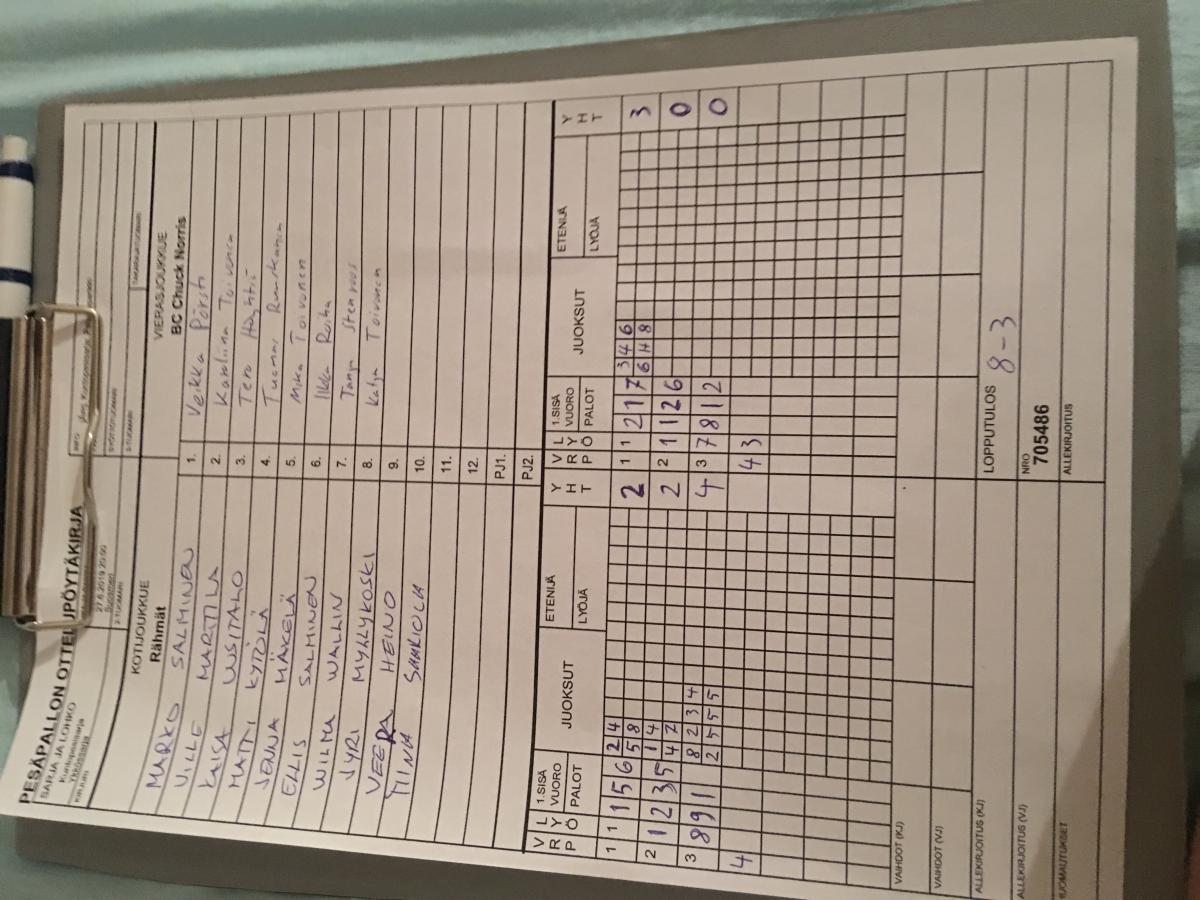 PESÄPALLON OTTELUPÖYTÄKIRJA
SARJA JA LOHKO
Kuntopesissarja
Ykkössarja
27.6.2019 20:00
KOTIJOUKKUE
Rähmät
VIERASJOUKKUE
BC Chuck Norris
MARKO SALMINEN 1. Veikka Pörsti
VILLE MARTTILA 2. Karoliina Toivonen
KAISA UUSITALO 3. Tero
MATTI KYTÖLÄ 4. Tuomas
JENNA MÄKELÄ 5. Mika Toivonen
ELLIS SALMINEN 6. Ilkka Roiha
WILMA WALLIN 7. Tanja Stenroos
JYRI MYLLYKOSKI 8. Katja Toivonen
VEERA HEINO 9.
TIINA 10.
11.
12.
PJ1.
PJ2.
VRP LYÖ 1.SISÄ VUORO PALOT JUOKSUT ETENIJÄ LYÖJÄ YHT VRP LYÖ 1.SISÄ VUORO PALOT JUOKSUT ETENIJÄ LYÖJÄ YHT
1 1 1 5 6 2 4 2 1 1 2 1 7 3 4 6 3
5 8 6 H 8
2 1 2 3 5 1 4 2 2 1 1 2 6 0
4 7
3 8 9 1 8 2 3 4 4 3 7 8 1 2 0
2 5 5 5
4 4 3
VAIHDOT (KJ)
VAIHDOT (VJ)
ALLEKIRJOITUS (KJ) LOPPUTULOS 8-3
ALLEKIRJOITUS (VJ) NRO 705486
HUOMAUTUKSET ALLEKIRJOITUS